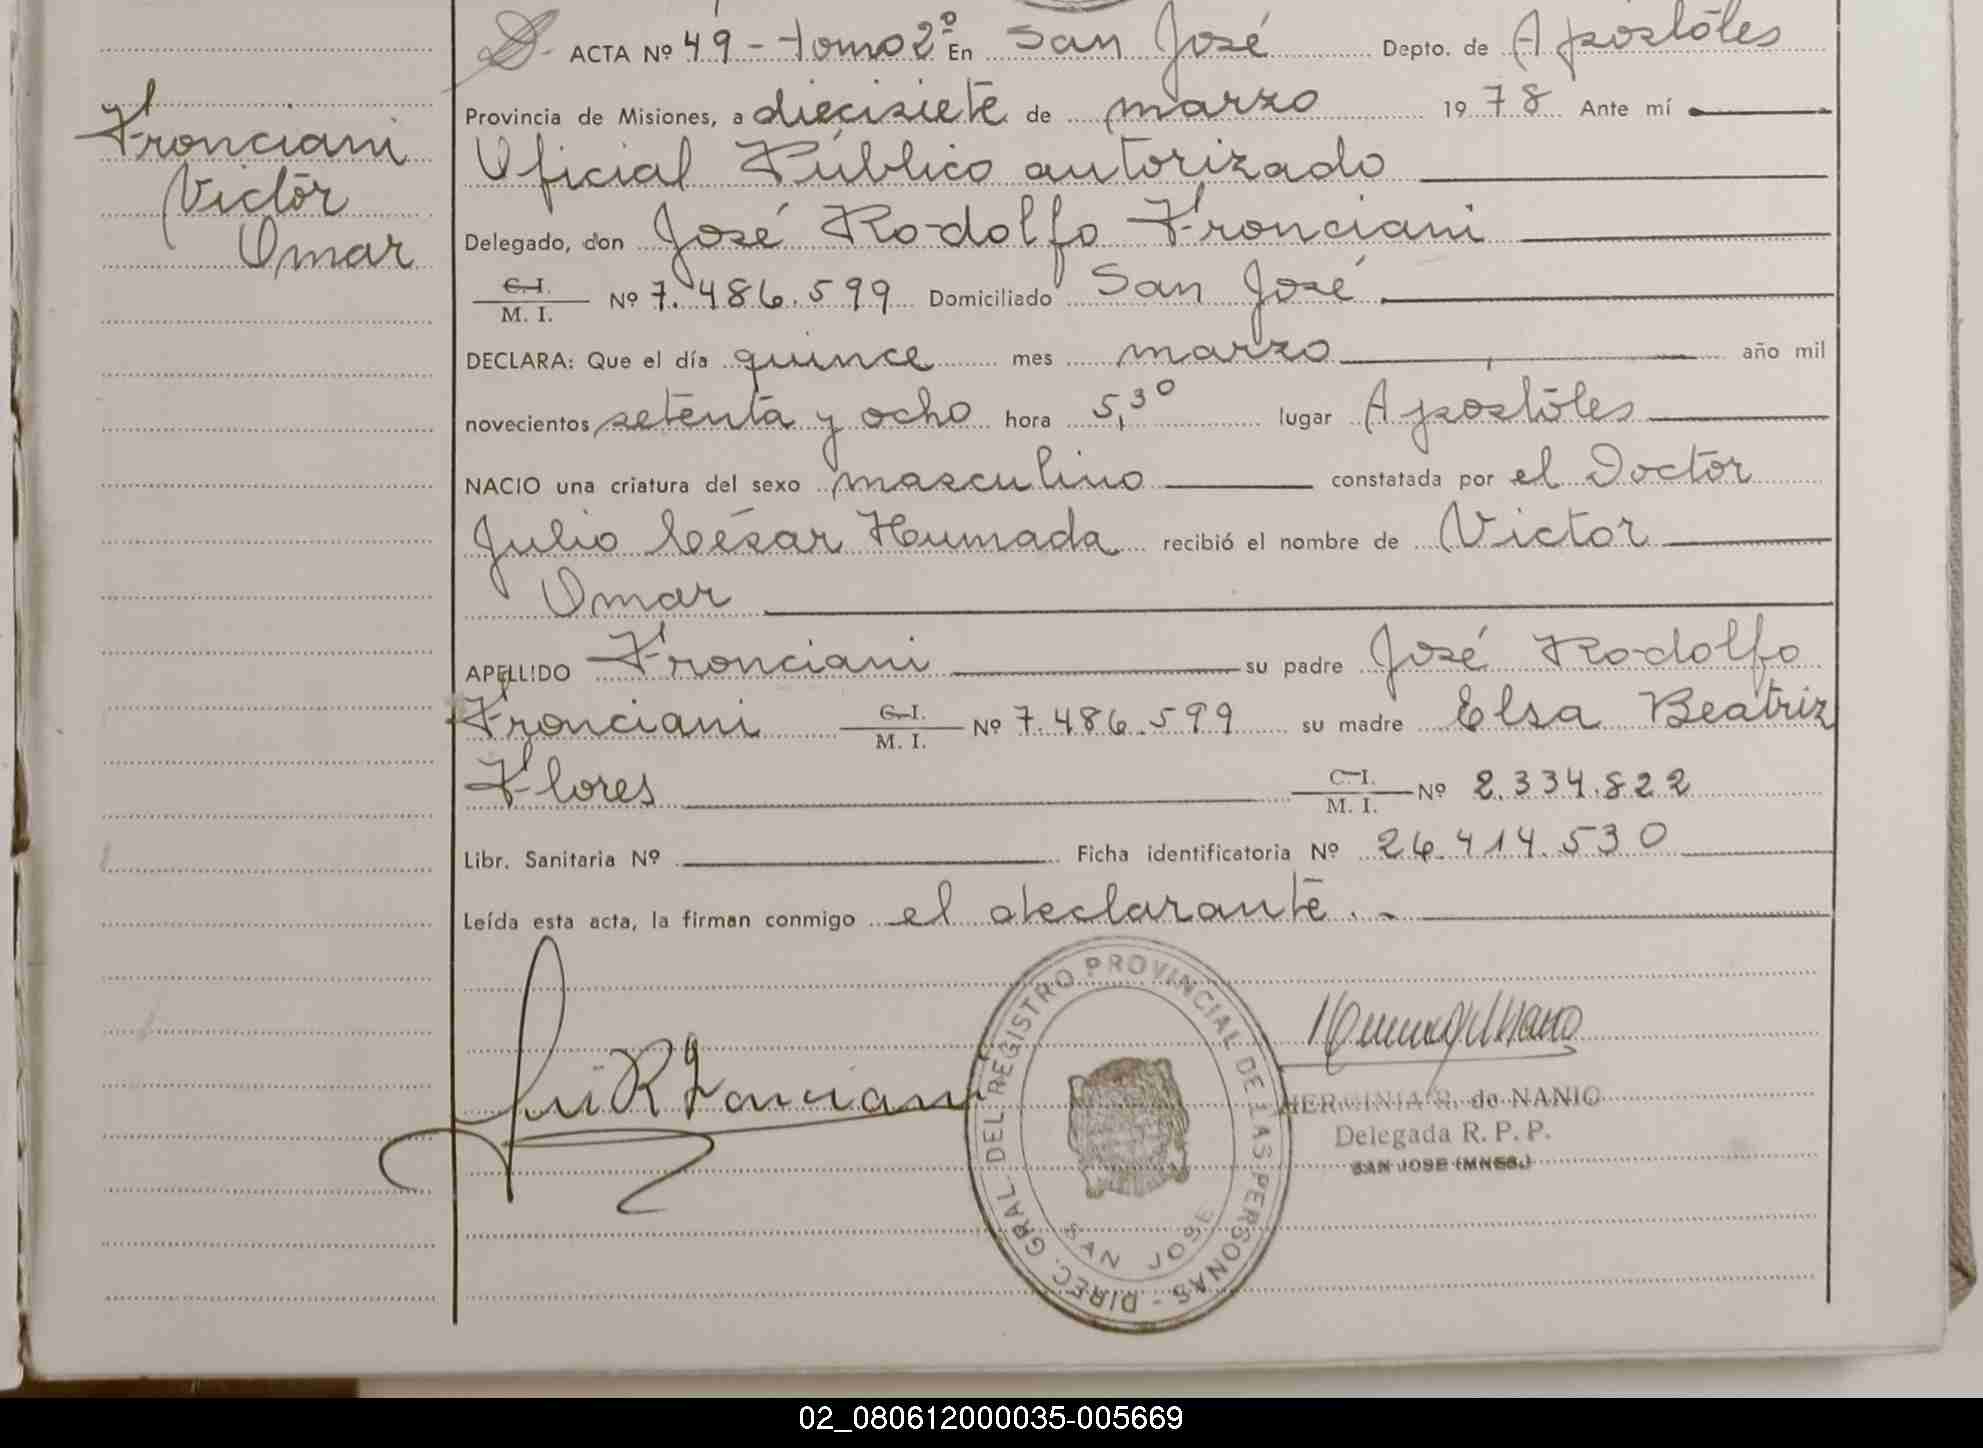 Fronciani
Victor
Omar
ACTA Nº 49 - tomo 2º En San José Depto. de Apostóles
Provincia de Misiones, a diecisiete de marzo 1978 Ante mí
Oficial Público autorizado
Delegado, don José Rodolfo Fronciani
C.I.
M. I. Nº 7.486.599 Domiciliado San José
DECLARA: Que el día quince mes marzo año mil
novecientos setenta y ocho hora 5,30 lugar Apostóles
NACIO una criatura del sexo masculino constatada por el Doctor
Julio César Humada recibió el nombre de Victor
Omar
APELLIDO Fronciani su padre José Rodolfo
Fronciani C.I. M. I. Nº 7.486.599 su madre Elsa Beatriz
Flores C.I. M. I. Nº 2.334.822
Libr. Sanitaria Nº Ficha identificatoria Nº 26.414.530
Leída esta acta, la firman conmigo el declarante.-
DIREC. GRAL. DEL REGISTRO PROVINCIAL DE LAS PERSONAS -
SAN JOSE
HERMINIA R. de NANIO
Delegada R. P. P.
SAN JOSE (MNES.)
02_080612000035-005669